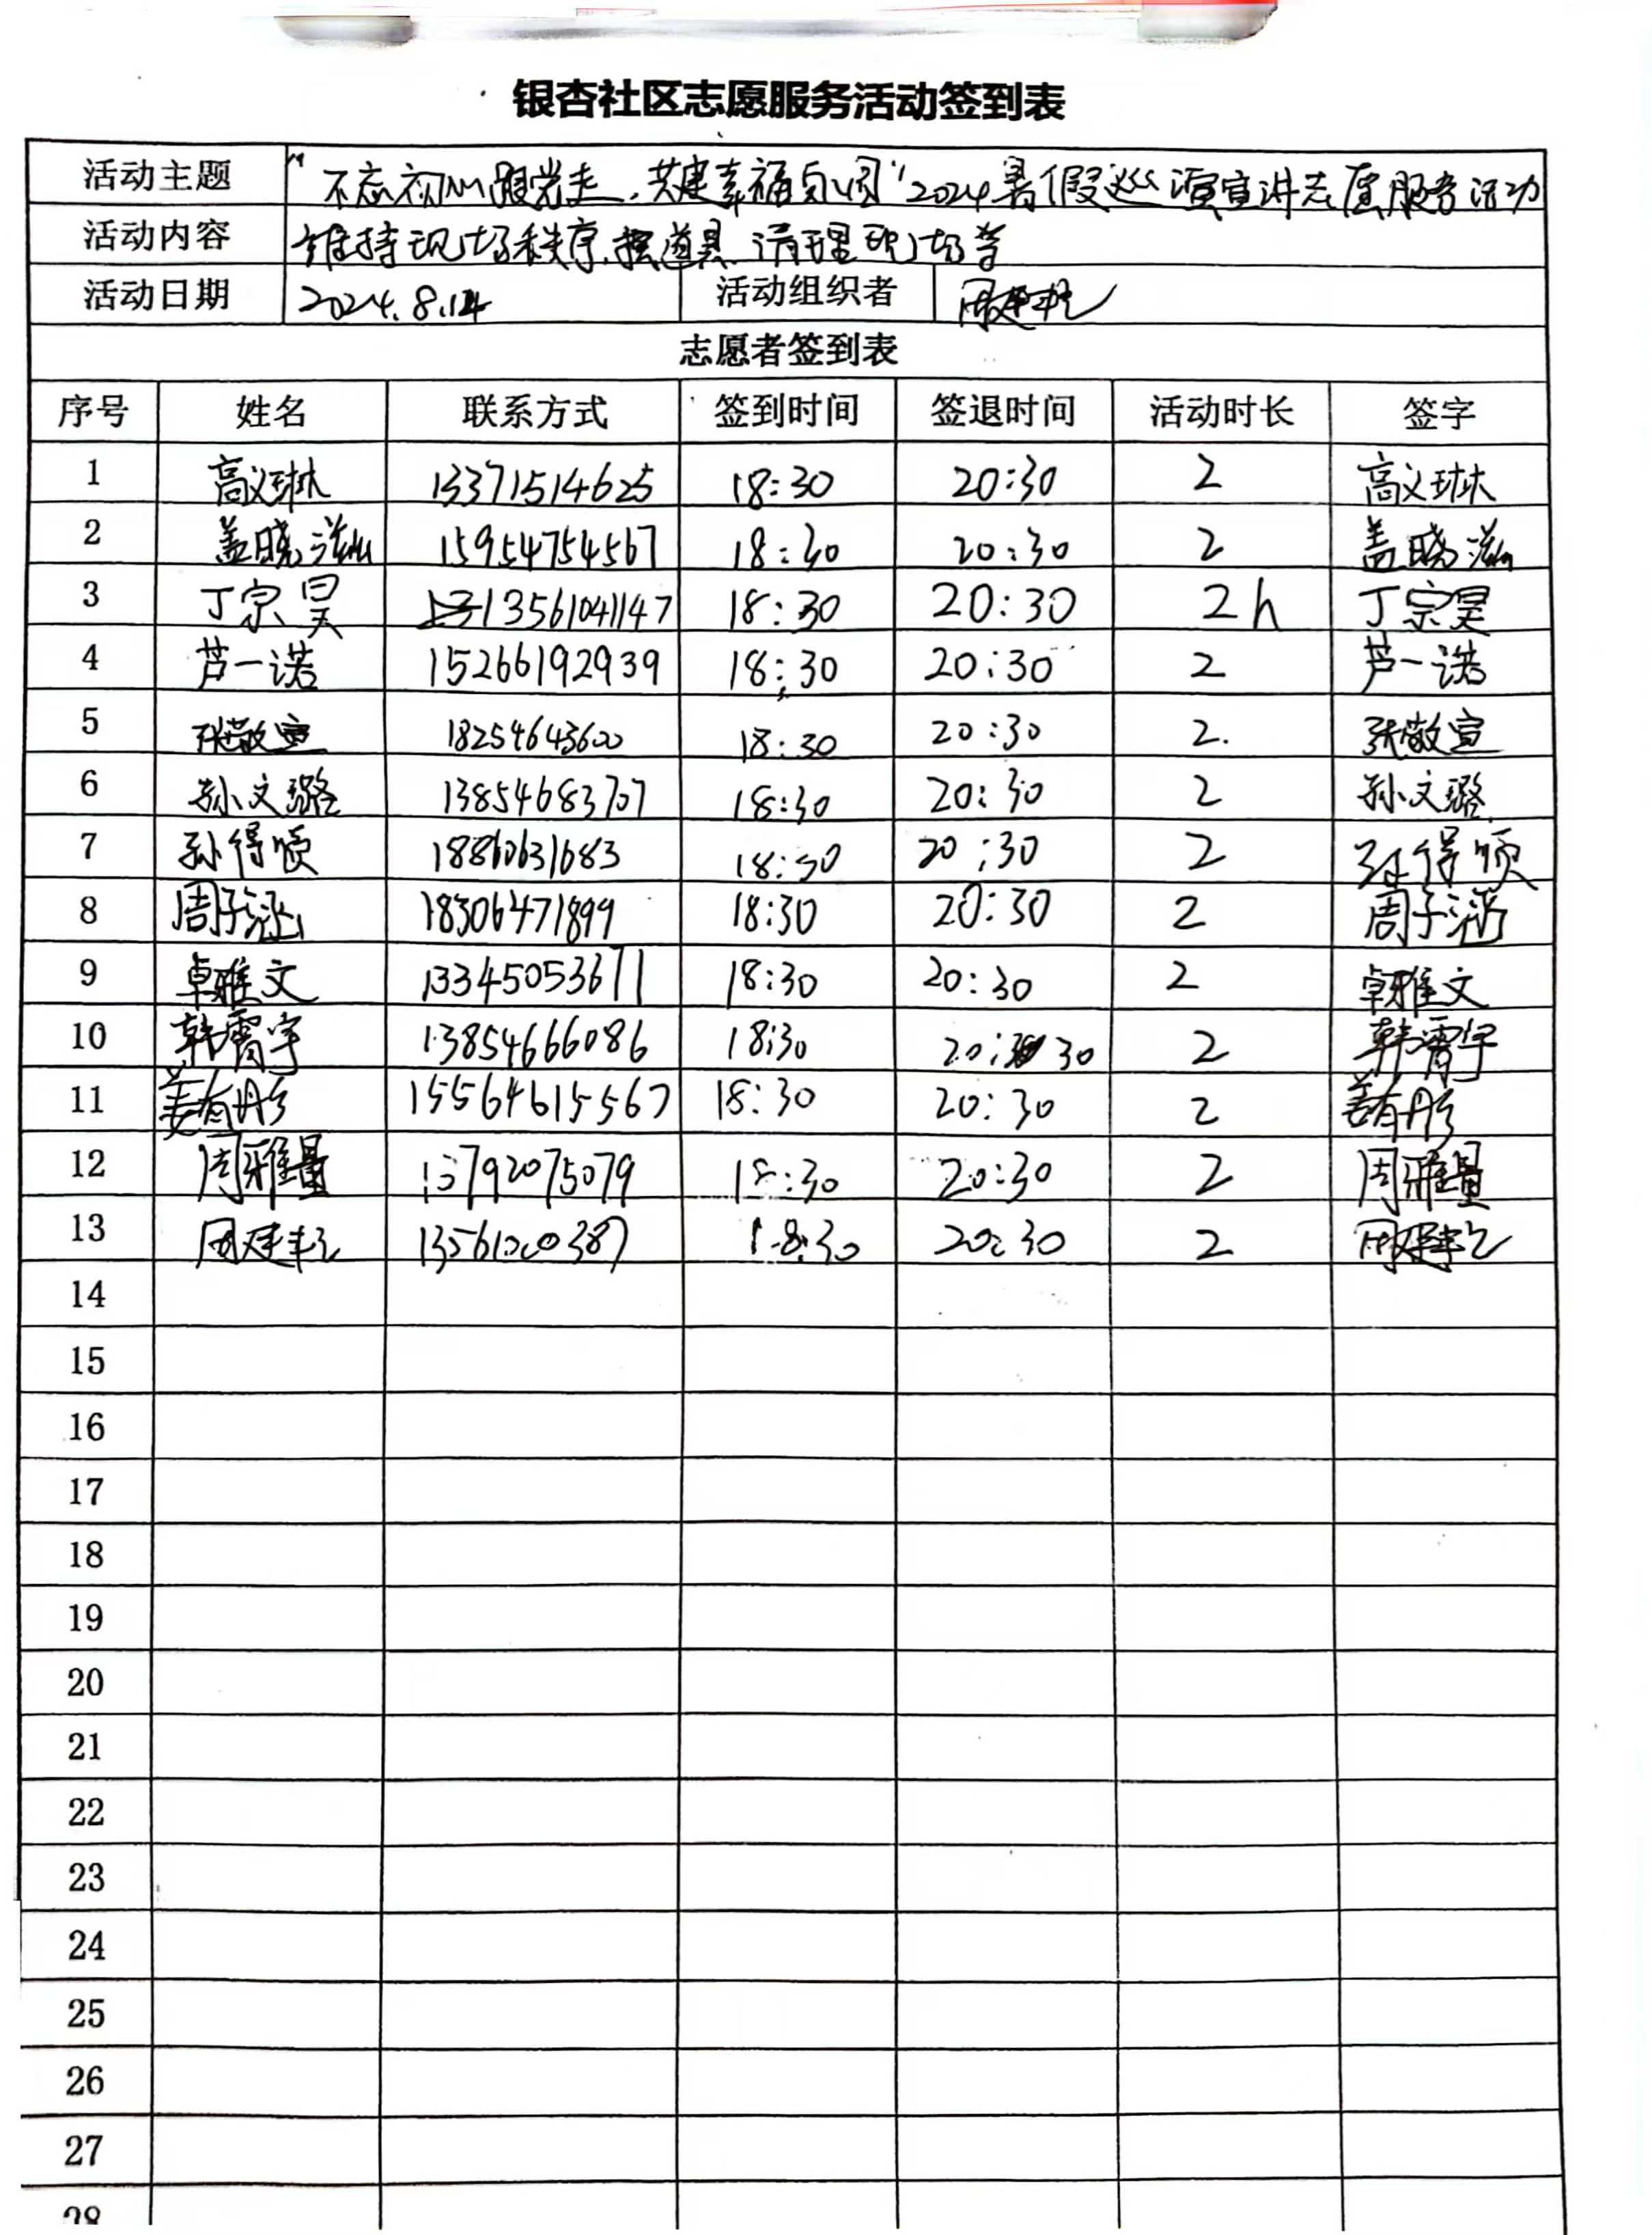 银杏社区志愿服务活动签到表
活动主题 "不忘初心跟党走,共建幸福 "2024暑假巡演宣讲志愿服务活动
活动内容 维持现场秩序,摆道具,清理现场等
活动日期 2024.8.14 活动组织者
志愿者签到表
序号 姓名 联系方式 签到时间 签退时间 活动时长 签字
1 高义琳 13371514625 18:30 20:30 2 高义琳
2 盖晓滋 15954754567 18:30 20:30 2 盖晓滋
3 丁宗昊 13561041147 18:30 20:30 2h 丁宗昊
4 芦一诺 15266192939 18:30 20:30 2 芦一诺
5 张敬宣 18254643600 18:30 20:30 2. 张敬宣
6 孙文璐 13854683707 18:30 20:30 2 孙文璐
7 孙得顺 18860631683 18:30 20:30 2 孙得顺
8 周子涵 18306471899 18:30 20:30 2 周子涵
9 卓雅文 13345053671 18:30 20:30 2 卓雅文
10 韩霄宇 13854666086 18:30 20:30 2 韩霄宇
11 姜有彤 15564615567 18:30 20:30 2 姜有彤
12 周雅量 13792075079 18:30 20:30 2 周雅量
13 18:30 20:30 2
14
15
16
17
18
19
20
21
22
23
24
25
26
27
28